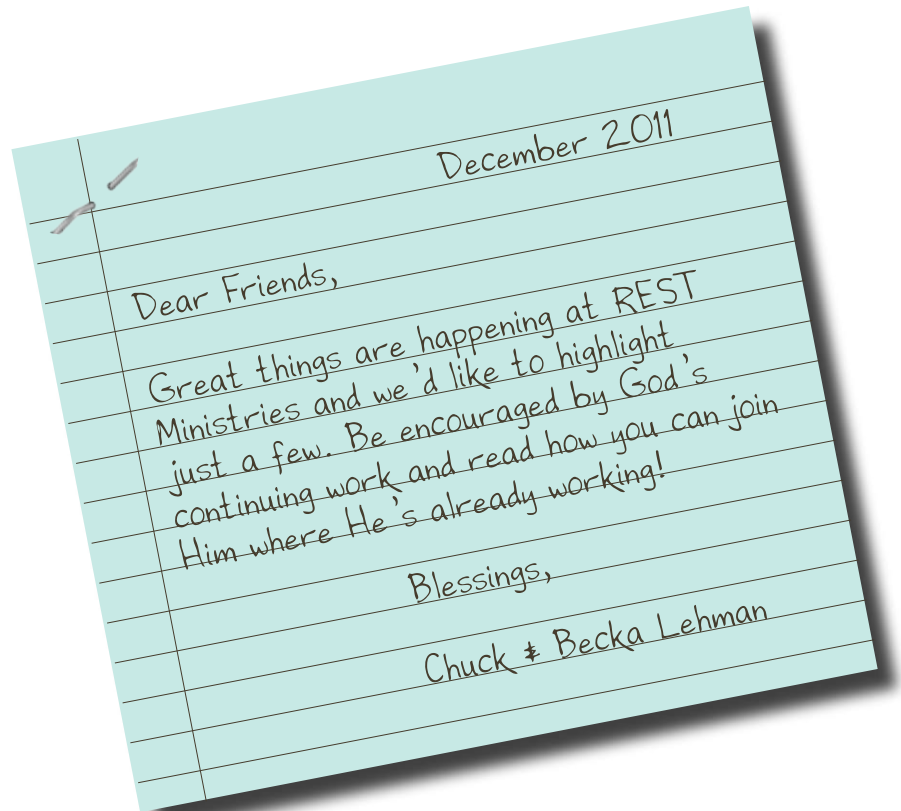 December 2011
Dear Friends,
Great things are happening at REST
Ministries and we'd like to highlight
just a few. Be encouraged by God's
continuing work and read how you can join
Him where He's already working!
Blessings,
Chuck & Becka Lehman